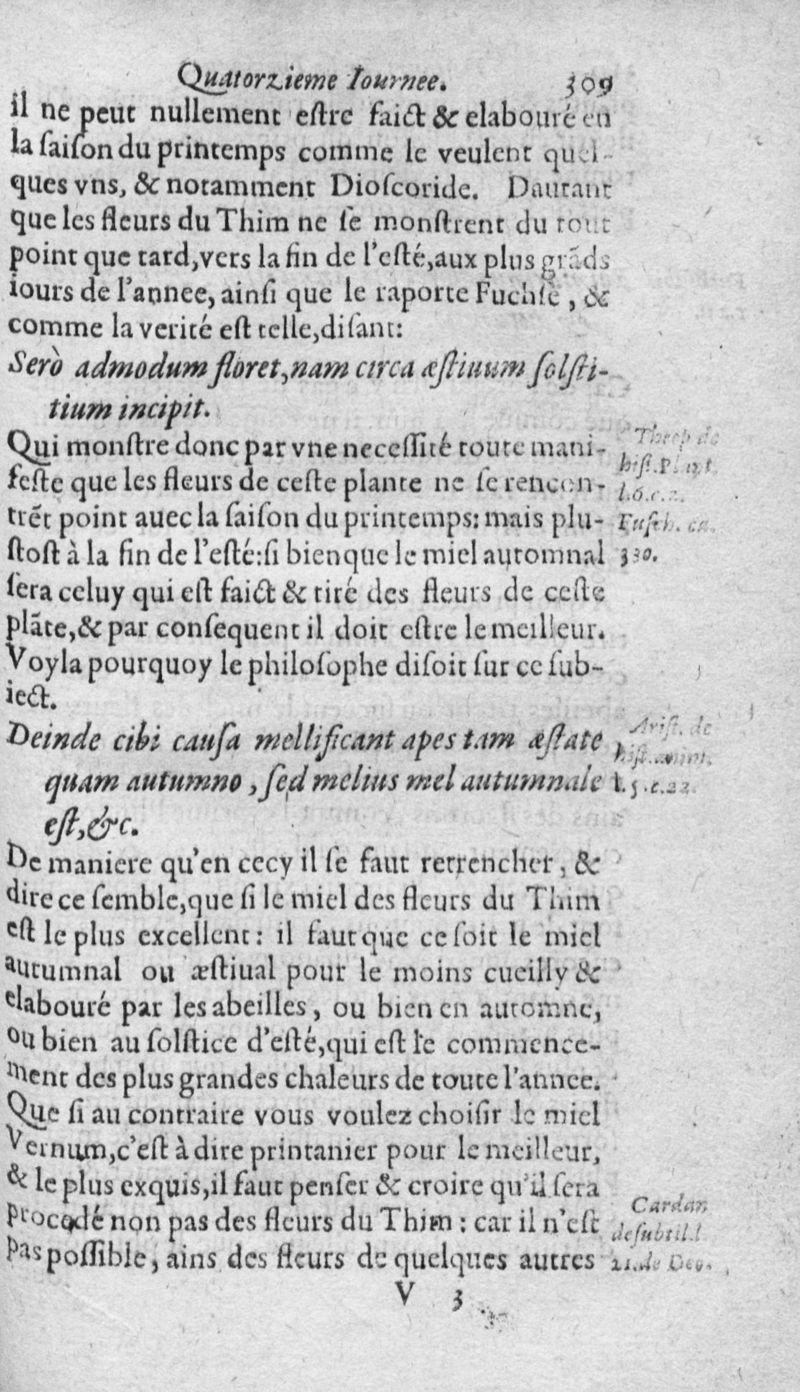 Quatorzieme Iournee. 309
il ne peut nullement estre faict & elabouré en
la saison du printemps comme le veulent quel-
ques vns, & notamment Dioscoride. Dautant
que les fleurs du Thim ne se monstrent du tout
point que tard, vers la fin de l'esté, aux plus grãds
iours de l'annee, ainsi que le raporte Fuchse, &
comme la verité est telle, disant:
Serò admodum floret, nam circa æstiuum solsti-
tium incipit.
Qui monstre donc par vne necessité toute mani-
feste que les fleurs de ceste plante ne se rencon-
trẽt point auec la saison du printemps: mais plu-
stost à la fin de l'esté: si bien que le miel automnal
sera celuy qui est faict & tiré des fleurs de ceste
plãte, & par consequent il doit estre le meilleur.
Voyla pourquoy le philosophe disoit sur ce sub-
iect.
Theop de
hist. Plat.
l.6.c.2.
Fusch. ca.
330.
Deinde cibi causa mellificant apes tam æstate
quam autumno, sed melius mel autumnale
est, &c.
Arist. de
hist. anim.
l.5.c.22.
De maniere qu'en cecy il se faut retrencher, &
dire ce semble, que si le miel des fleurs du Thim
est le plus excellent: il faut que ce soit le miel
autumnal ou æstiual pour le moins cueilly &
elabouré par les abeilles, ou bien en automne,
ou bien au solstice d'esté, qui est le commence-
ment des plus grandes chaleurs de toute l'annee.
Que si au contraire vous voulez choisir le miel
Vernum, c'est à dire printanier pour le meilleur,
& le plus exquis, il faut penser & croire qu'il sera
procedé non pas des fleurs du Thim: car il n'est
pas possible, ains des fleurs de quelques autres
Cardan
de subtil.l
21. de
V 3